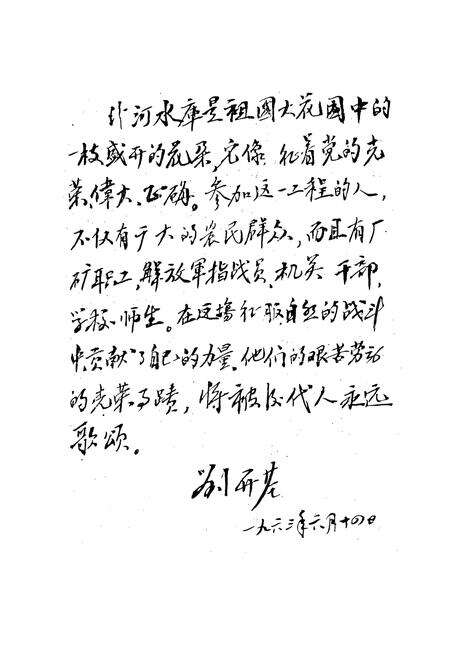 汾河水库是祖國大花園中的
一枝盛开的花朵,它像征着党的光
荣、偉大、正确。参加这一工程的人,
不仅有广大的农民群众,而且有厂
矿职工,解放軍指战员,机关干部,
学校师生。在这場征服自然的战斗
中贡献了自己的力量,他们的艰苦劳动
的光荣事蹟,将被后代人永远
歌颂。
刘开基
一九六三年六月十四日